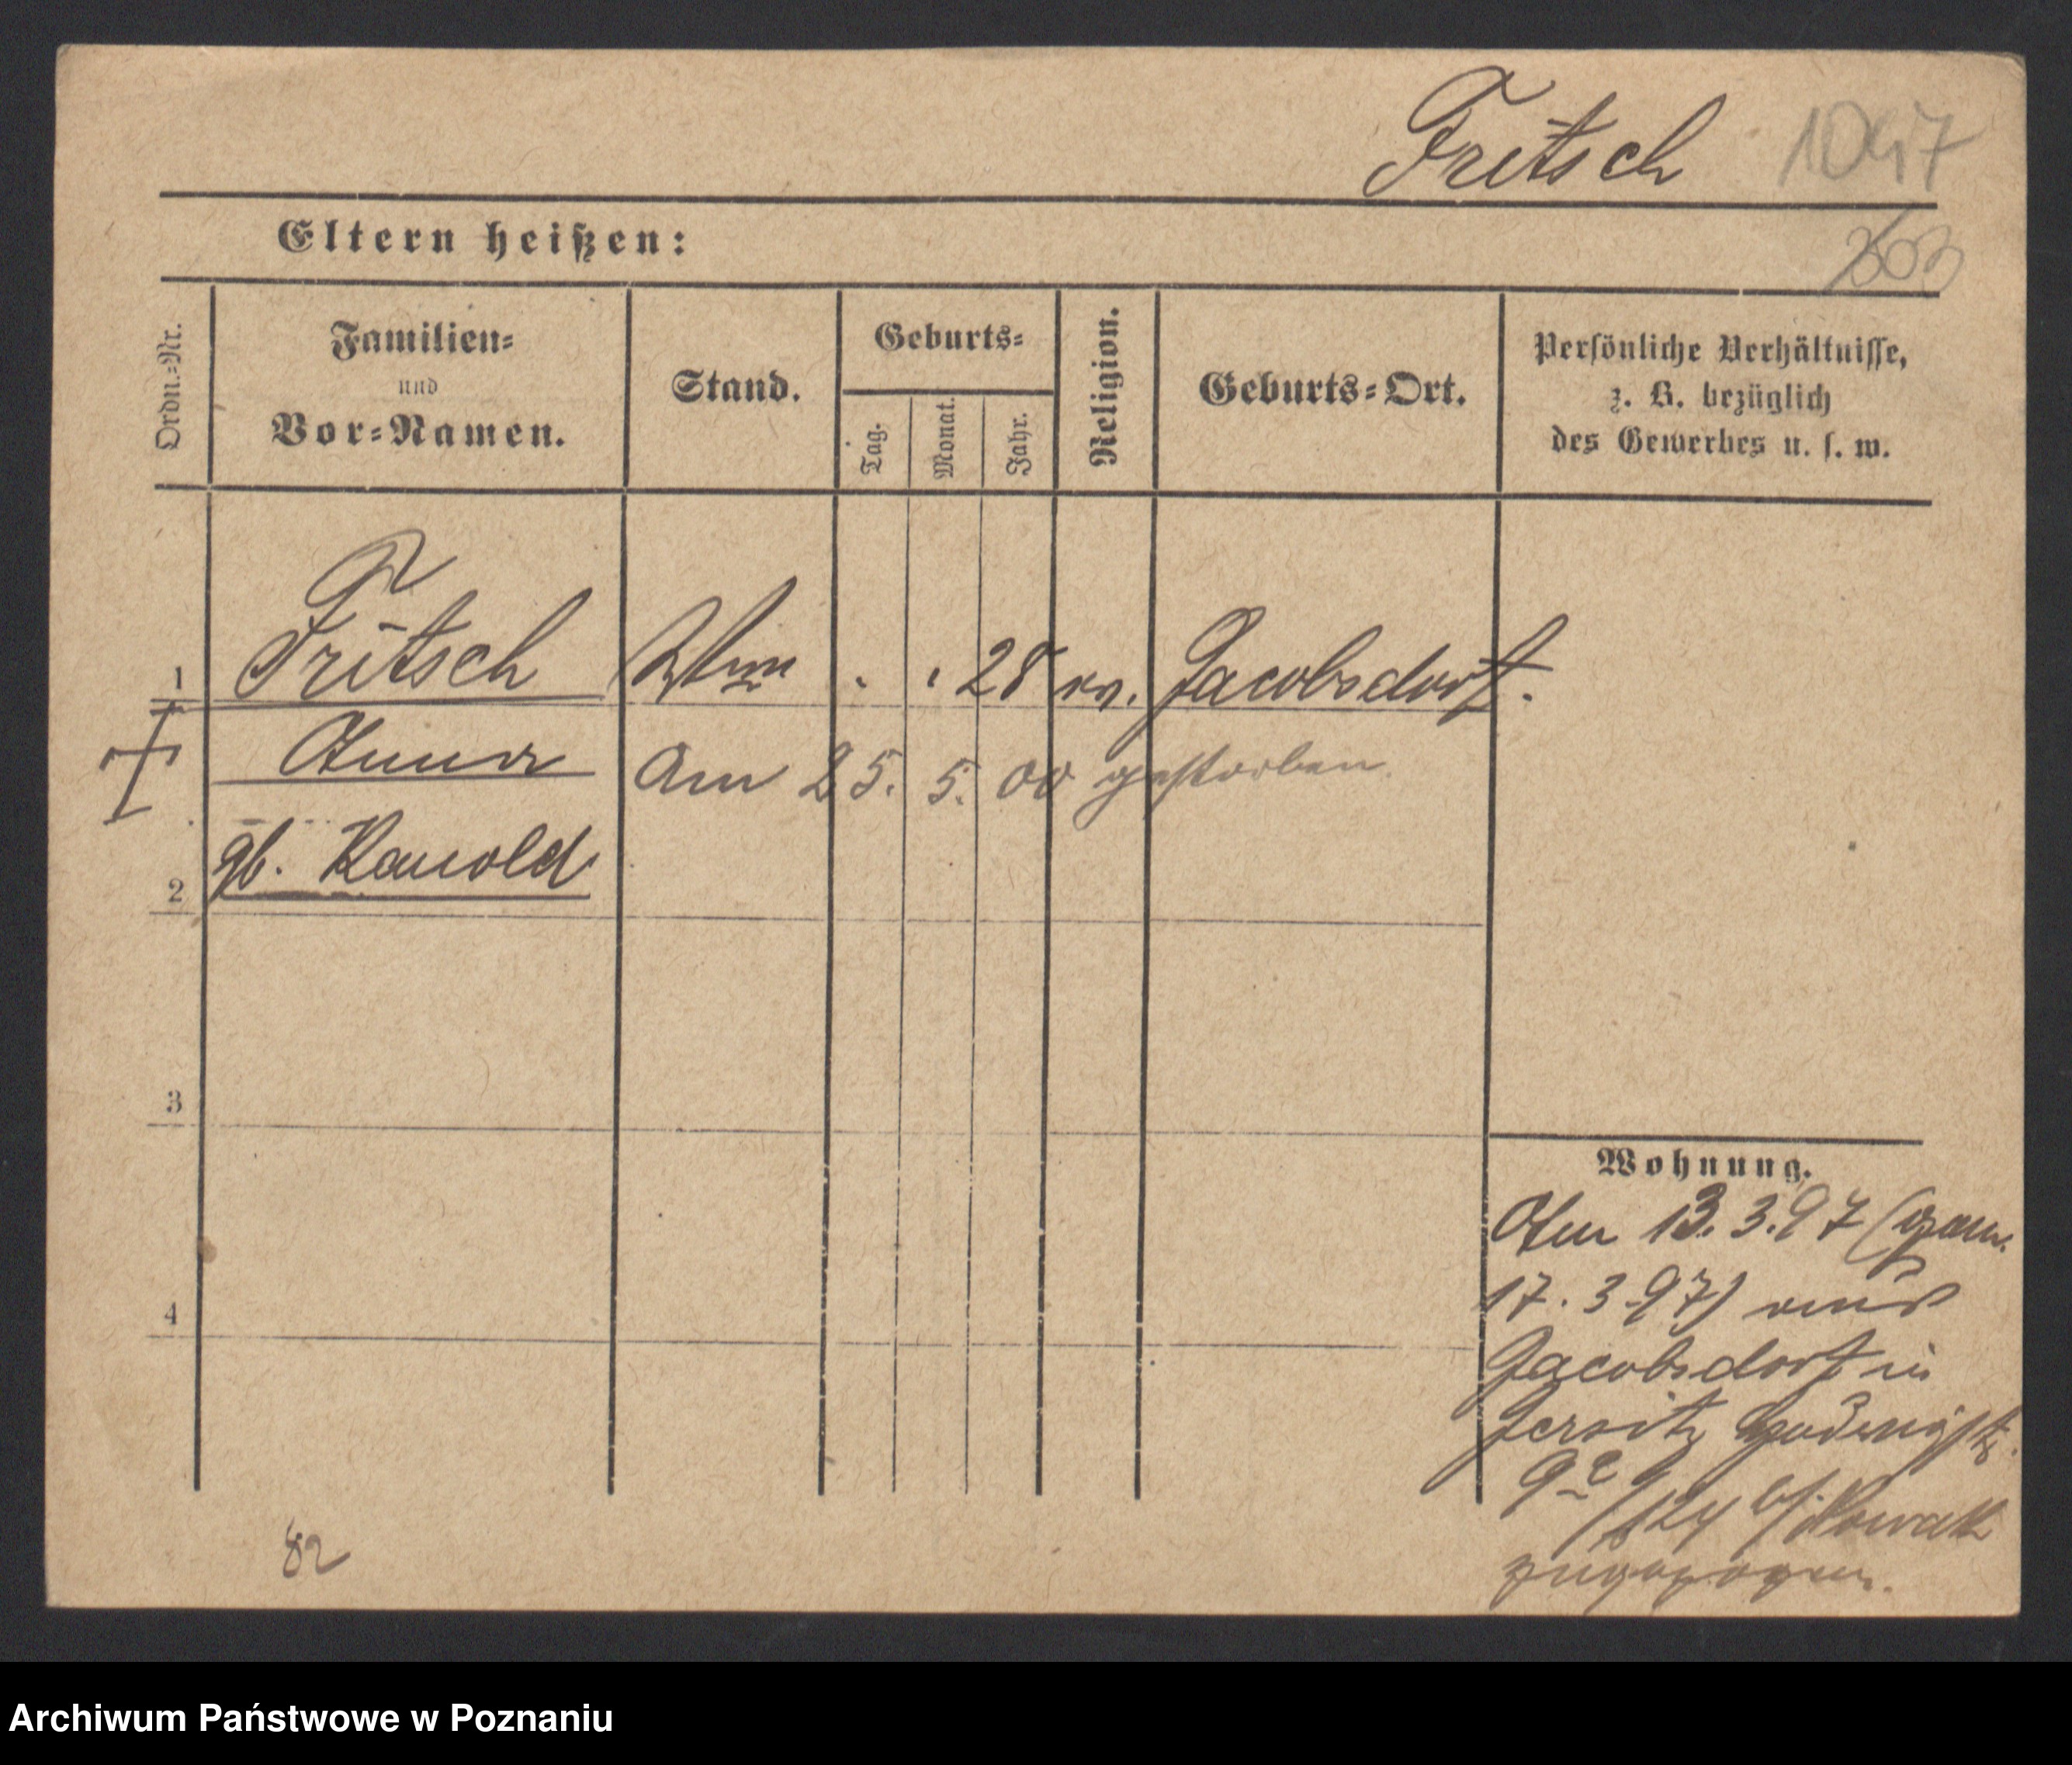 Fritsch 1047
Eltern heißen:
Ordn.=Nr.
Familien=
und
Vor=Namen.
Stand.
Geburts=
Tag.
Monat.
Jahr.
Religion.
Geburts=Ort.
Persönliche Verhältnisse,
z. B. bezüglich
des Gewerbes u. s. w.
1 Fritsch Wwe . . 28 ev. Jacobsdorf.
Anna Am 25. 5. 00 gestorben.
2 gb. Kanold
3
4
Wohnung.
Am 13.3.97 (gem.
17.3.97) aus
Jacobsdorf in
Jersitz Hedwigstr.
9a b/ Nowak
zugezogen.
82
Archiwum Państwowe w Poznaniu